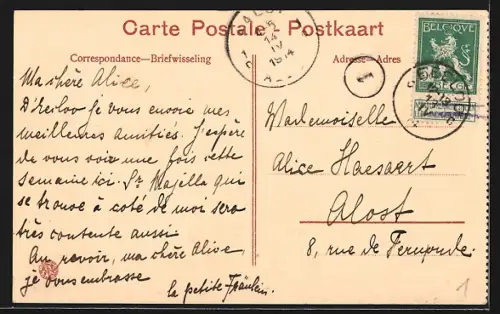 Carte Postale - Postkaart
Correspondance—Briefwisseling
Adresse—Adres
BELGIQUE
1914
1
Ma chère Alice,
D'Eecloo je vous envoie mes
meilleures amitiés. J'espère
de vous voir une fois cette
semaine ici. Sr Majella qui
se trouve à coté de moi sera
très contente aussi
Au revoir, ma chère Alice,
je vous embrasse
la petite Fräulein
Mademoiselle
Alice Haesaert
Alost
8, rue de
1